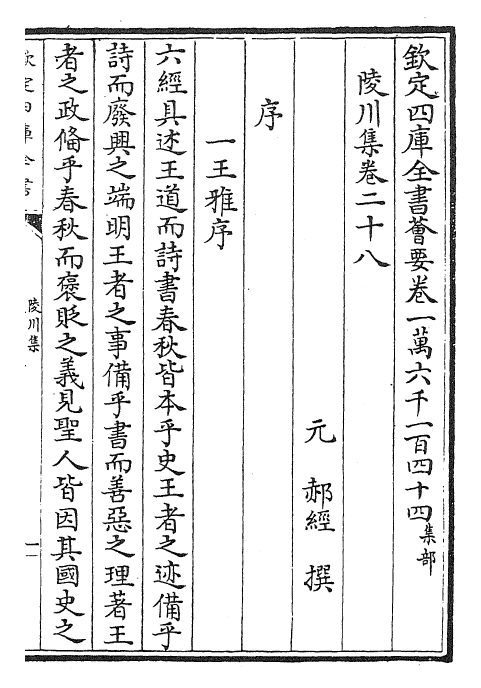 欽定四庫全書薈要卷一萬六千一百四十四集部
陵川集卷二十八
元 郝經 撰
序
一王雅序
六經具述王道而詩書春秋皆本乎史王者之迹備乎
詩而廢興之端明王者之事備乎書而善惡之理著王
者之政備乎春秋而褒貶之義見聖人皆因其國史之
欽定四庫全書
陵川集
一